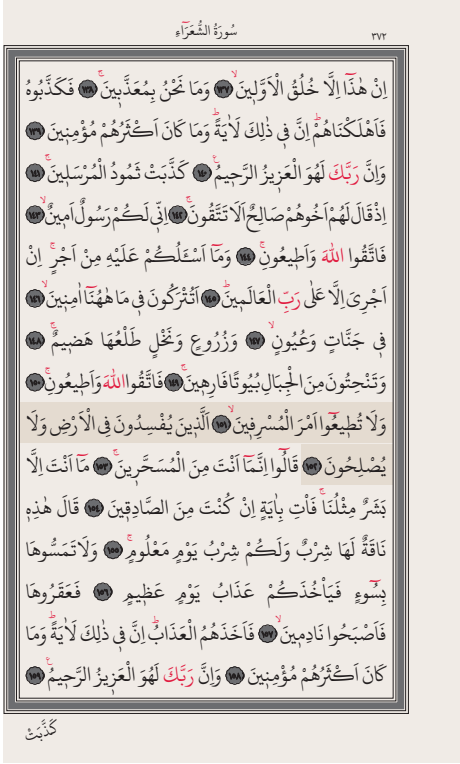 سُورَةُ الشُّعَرَاءِ
٣٧٢
اِنْ هٰذَٓا اِلَّا خُلُقُ الْاَوَّل۪ينَۙ ﴿١٣٧﴾ وَمَا نَحْنُ بِمُعَذَّب۪ينَۚ ﴿١٣٨﴾ فَكَذَّبُوهُ
فَاَهْلَكْنَاهُمْۜ اِنَّ ف۪ي ذٰلِكَ لَاٰيَةًۜ وَمَا كَانَ اَكْثَرُهُمْ مُؤْمِن۪ينَ ﴿١٣٩﴾
وَاِنَّ رَبَّكَ لَهُوَ الْعَز۪يزُ الرَّح۪يمُ۟ ﴿١٤٠﴾ كَذَّبَتْ ثَمُودُ الْمُرْسَل۪ينَۚ ﴿١٤١﴾
اِذْ قَالَ لَهُمْ اَخُوهُمْ صَالِحٌ اَلَا تَتَّقُونَۚ ﴿١٤٢﴾ اِنّ۪ي لَكُمْ رَسُولٌ اَم۪ينٌۙ ﴿١٤٣﴾
فَاتَّقُوا اللّٰهَ وَاَط۪يعُونِۚ ﴿١٤٤﴾ وَمَٓا اَسْـَٔلُكُمْ عَلَيْهِ مِنْ اَجْرٍۚ اِنْ
اَجْرِيَ اِلَّا عَلٰى رَبِّ الْعَالَم۪ينَۜ ﴿١٤٥﴾ اَتُتْرَكُونَ ف۪ي مَا هٰهُنَٓا اٰمِن۪ينَۙ ﴿١٤٦﴾
ف۪ي جَنَّاتٍ وَعُيُونٍۙ ﴿١٤٧﴾ وَزُرُوعٍ وَنَخْلٍ طَلْعُهَا هَض۪يمٌۚ ﴿١٤٨﴾
وَتَنْحِتُونَ مِنَ الْجِبَالِ بُيُوتًا فَارِه۪ينَۚ ﴿١٤٩﴾ فَاتَّقُوا اللّٰهَ وَاَط۪يعُونِۚ ﴿١٥٠﴾
وَلَا تُط۪يعُٓوا اَمْرَ الْمُسْرِف۪ينَۙ ﴿١٥١﴾ اَلَّذ۪ينَ يُفْسِدُونَ فِي الْاَرْضِ وَلَا
يُصْلِحُونَ ﴿١٥٢﴾ قَالُٓوا اِنَّمَٓا اَنْتَ مِنَ الْمُسَحَّر۪ينَۚ ﴿١٥٣﴾ مَٓا اَنْتَ اِلَّا
بَشَرٌ مِثْلُنَاۚ فَأْتِ بِاٰيَةٍ اِنْ كُنْتَ مِنَ الصَّادِق۪ينَ ﴿١٥٤﴾ قَالَ هٰذِه۪
نَاقَةٌ لَهَا شِرْبٌ وَلَكُمْ شِرْبُ يَوْمٍ مَعْلُومٍۚ ﴿١٥٥﴾ وَلَا تَمَسُّوهَا
بِسُٓوءٍ فَيَأْخُذَكُمْ عَذَابُ يَوْمٍ عَظ۪يمٍ ﴿١٥٦﴾ فَعَقَرُوهَا
فَاَصْبَحُوا نَادِم۪ينَۙ ﴿١٥٧﴾ فَاَخَذَهُمُ الْعَذَابُۜ اِنَّ ف۪ي ذٰلِكَ لَاٰيَةًۜ وَمَا
كَانَ اَكْثَرُهُمْ مُؤْمِن۪ينَ ﴿١٥٨﴾ وَاِنَّ رَبَّكَ لَهُوَ الْعَز۪يزُ الرَّح۪يمُ۟ ﴿١٥٩﴾
كَذَّبَتْ